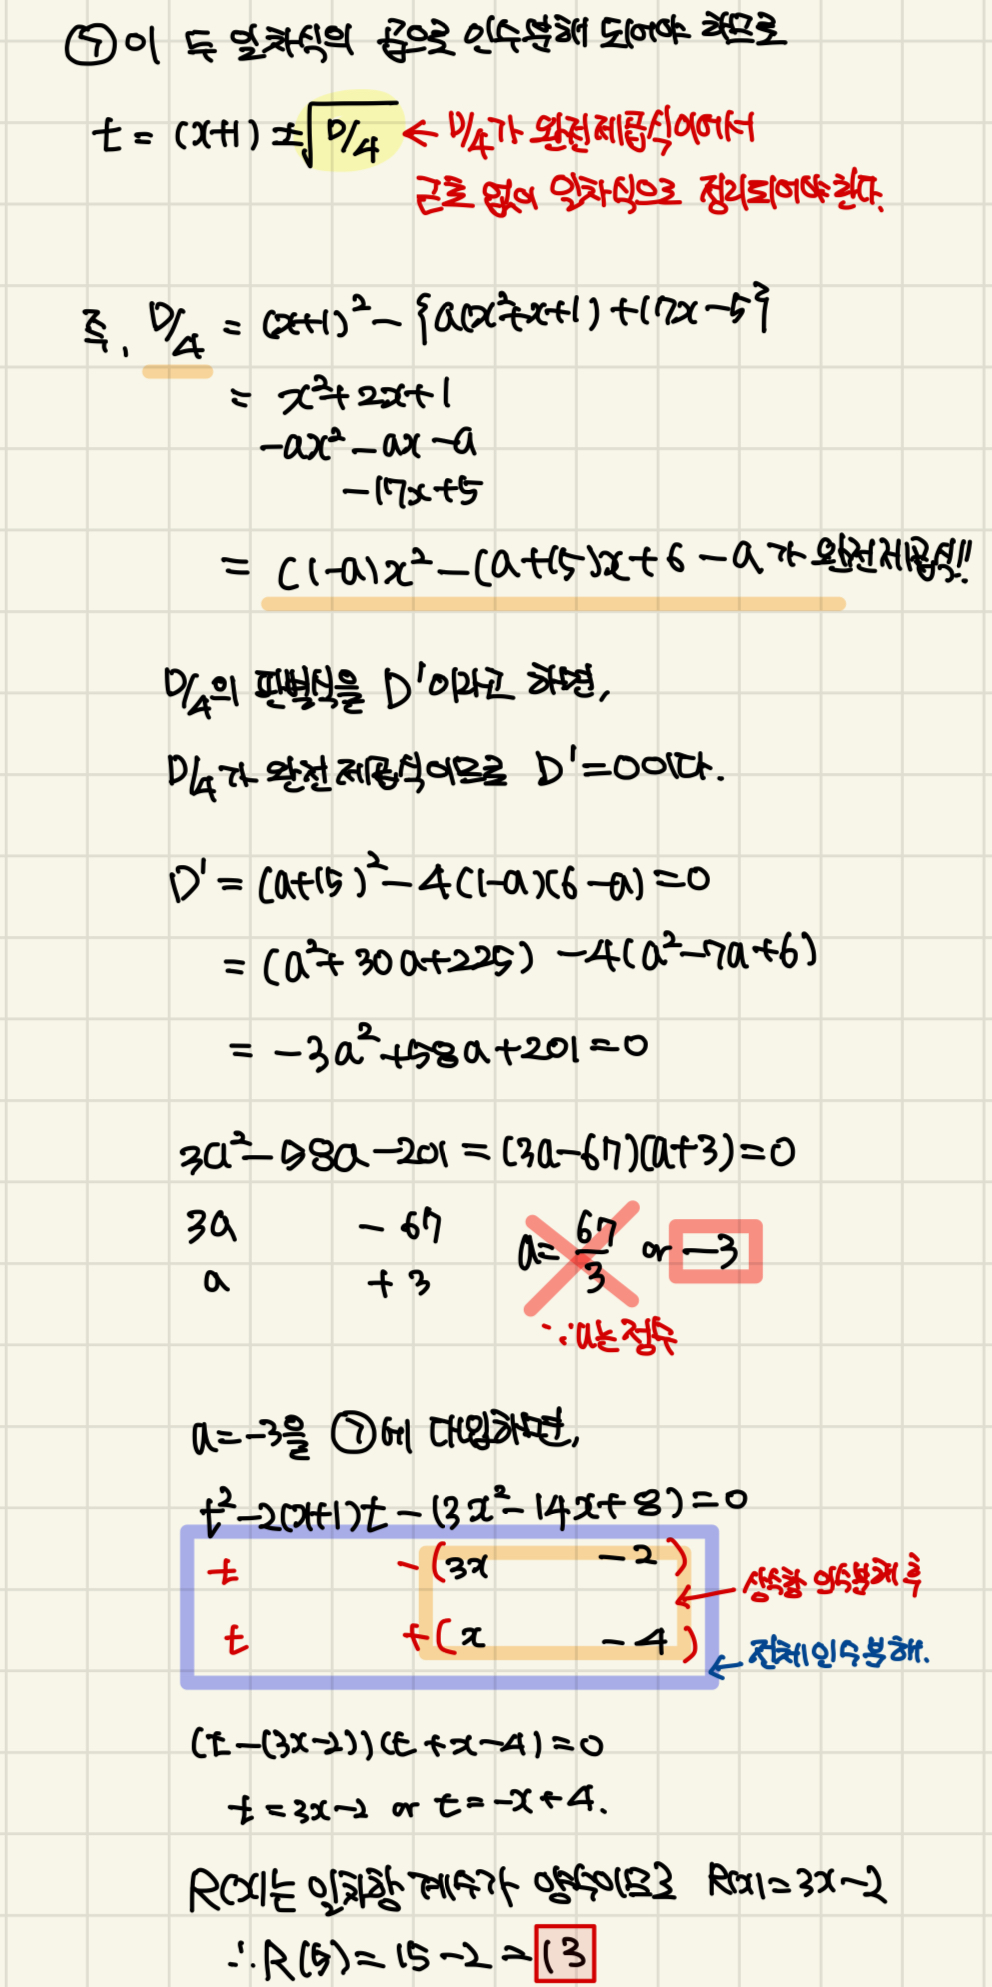 ㉠이 두 일차식의 곱으로 인수분해 되어야 하므로
t = (x+1) ±√D/4 ← D/4가 완전제곱식이어서
근호 없이 일차식으로 정리되어야한다.
즉, D/4 = (x+1)² - {a(x²+x+1) + 17x-5}
= x²+2x+1
-ax²-ax-a
-17x+5
= (1-a)x²-(a+15)x+6-a가 완전제곱식!!
D/4의 판별식을 D'이라고 하면,
D/4가 완전제곱식이므로 D'=0이다.
D' = (a+15)²-4(1-a)(6-a)=0
= (a²+30a+225) -4(a²-7a+6)
= -3a²+58a+201=0
3a²-58a-201 = (3a-67)(a+3)=0
3a -67
a +3
a= 67/3 or -3
∵a는 정수
a=-3을 ㉠에 대입하면,
t²-2(x+1)t-(3x²-14x+8)=0
t -(3x -2)
← 상수항 인수분해 후
t +(x -4)
← 전체 인수분해.
(t-(3x-2))(t+x-4)=0
t=3x-2 or t=-x+4.
R(x)는 일차항 계수가 양수이므로 R(x)=3x-2
∴R(5)=15-2=13